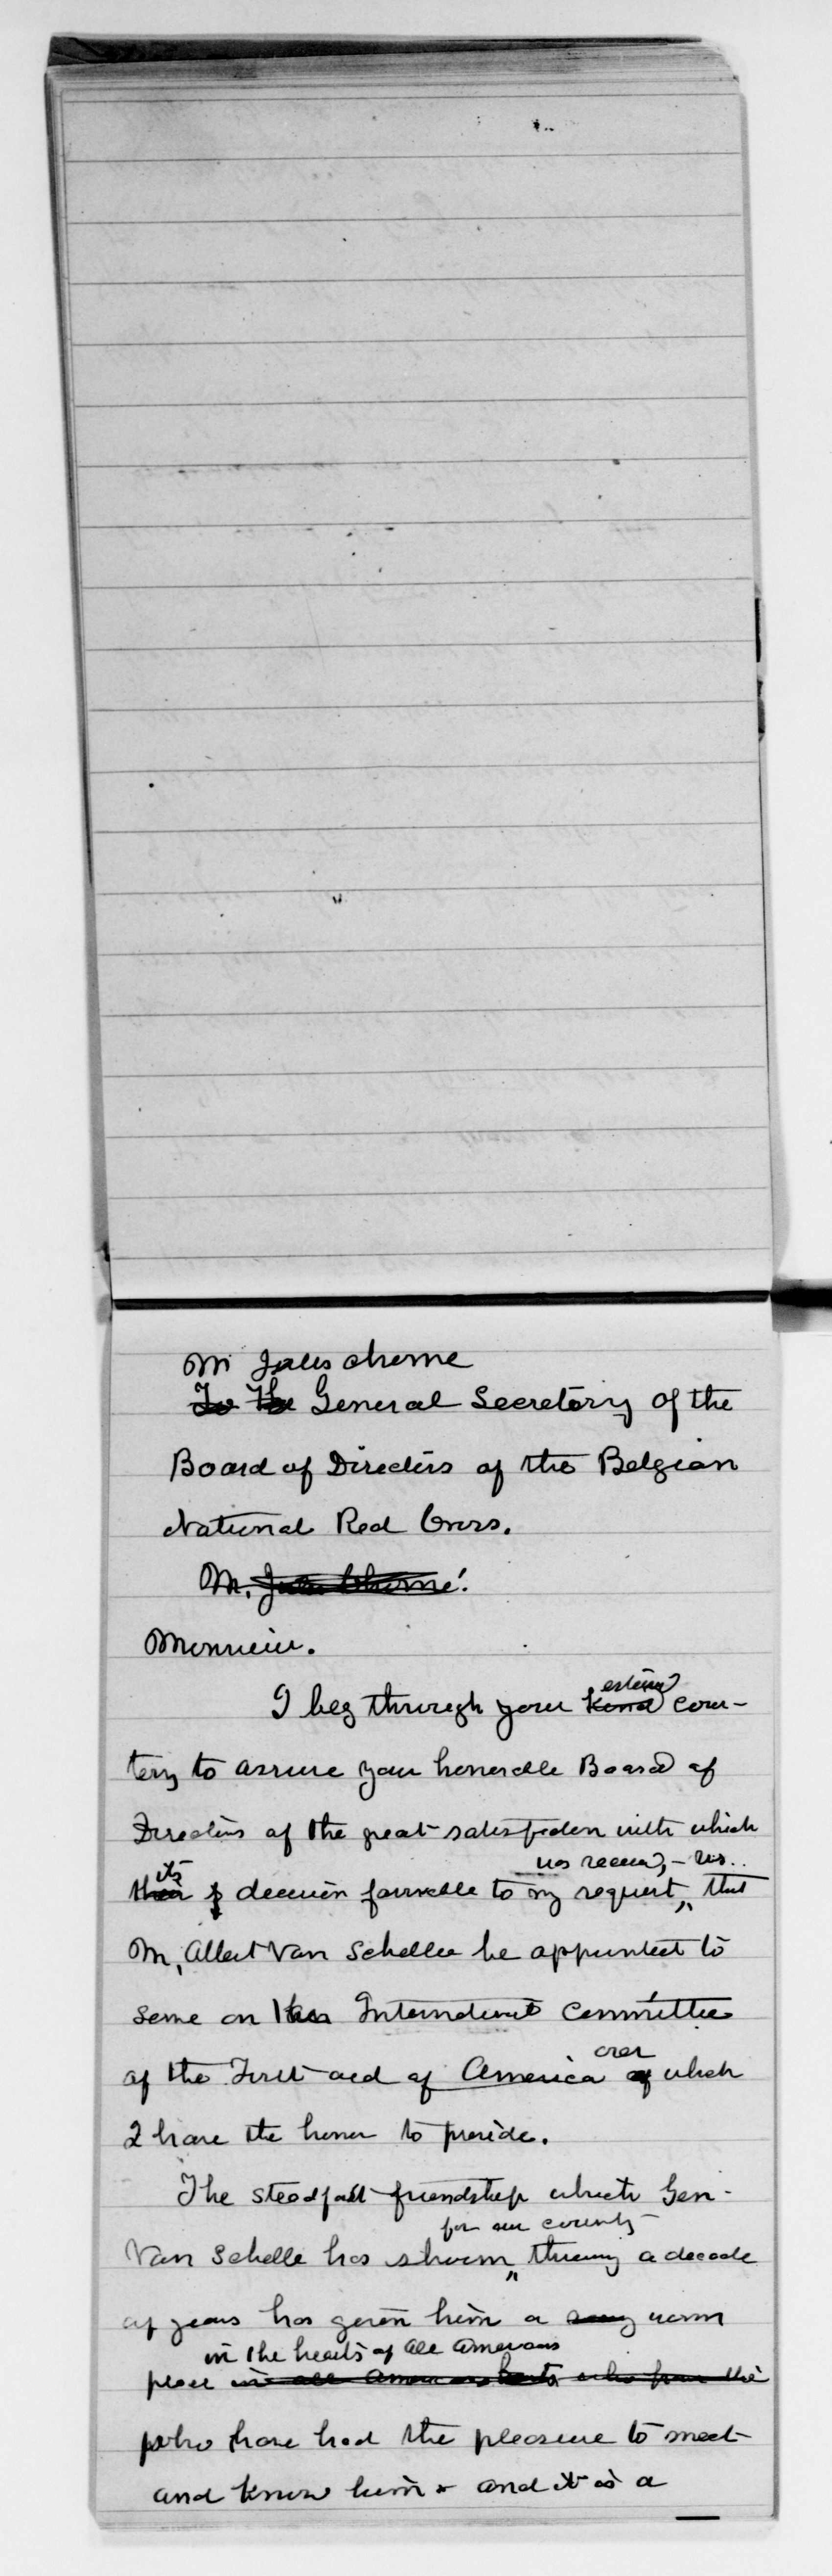 M Jules Chome
To The General Secretary of the
Board of Directors of the Belgian
National Red Cross.
M. Jules Chome!
Monsieur.
esteemed
I beg through your kind cour-
tesy to assure your honorable Board of
Directors of the great satisfaction with which
was received, - vis..
its
their decision favorable to my request, that
M, Albert Van Schelle be appointed to
serve on the International Committee
over
of the First aid of America of which
I have the honor to preside.
The steadfast friendship which Gen-
for our country
Van Schelle has shown, through a decade
of years has given him a warm
in the hearts of all Americans
place in all American hearts who from the
who have had the pleasure to meet
and know him & and it is a